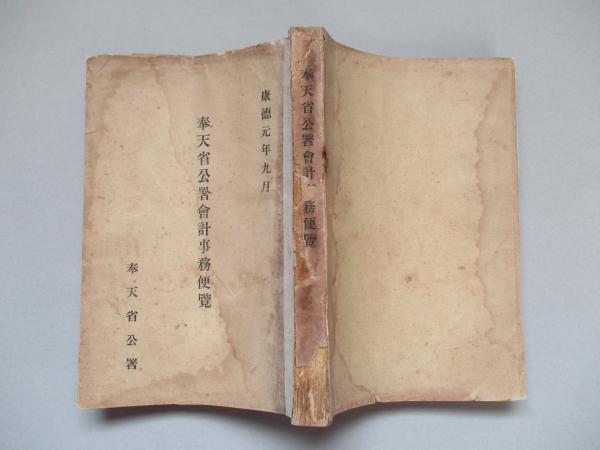 康德元年九月
奉天省公署會計事務便覽
奉天省公署
奉天省公署會計 務便覽